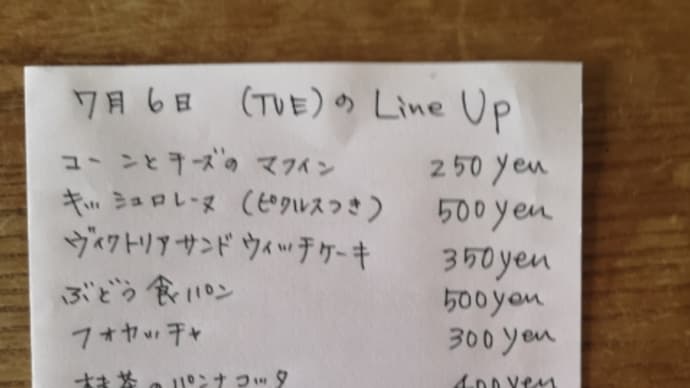 7月6日 (TUE)の Line Up
コーンとチーズの マフィン 250 yen
キッシュロレーヌ (ピクルスつき) 500 yen
ヴィクトリアサンドウィッチケーキ 350 yen
ぶどう食パン 500 yen
フォカッチャ 300 yen
抹茶のパンナコッタ 400 yen